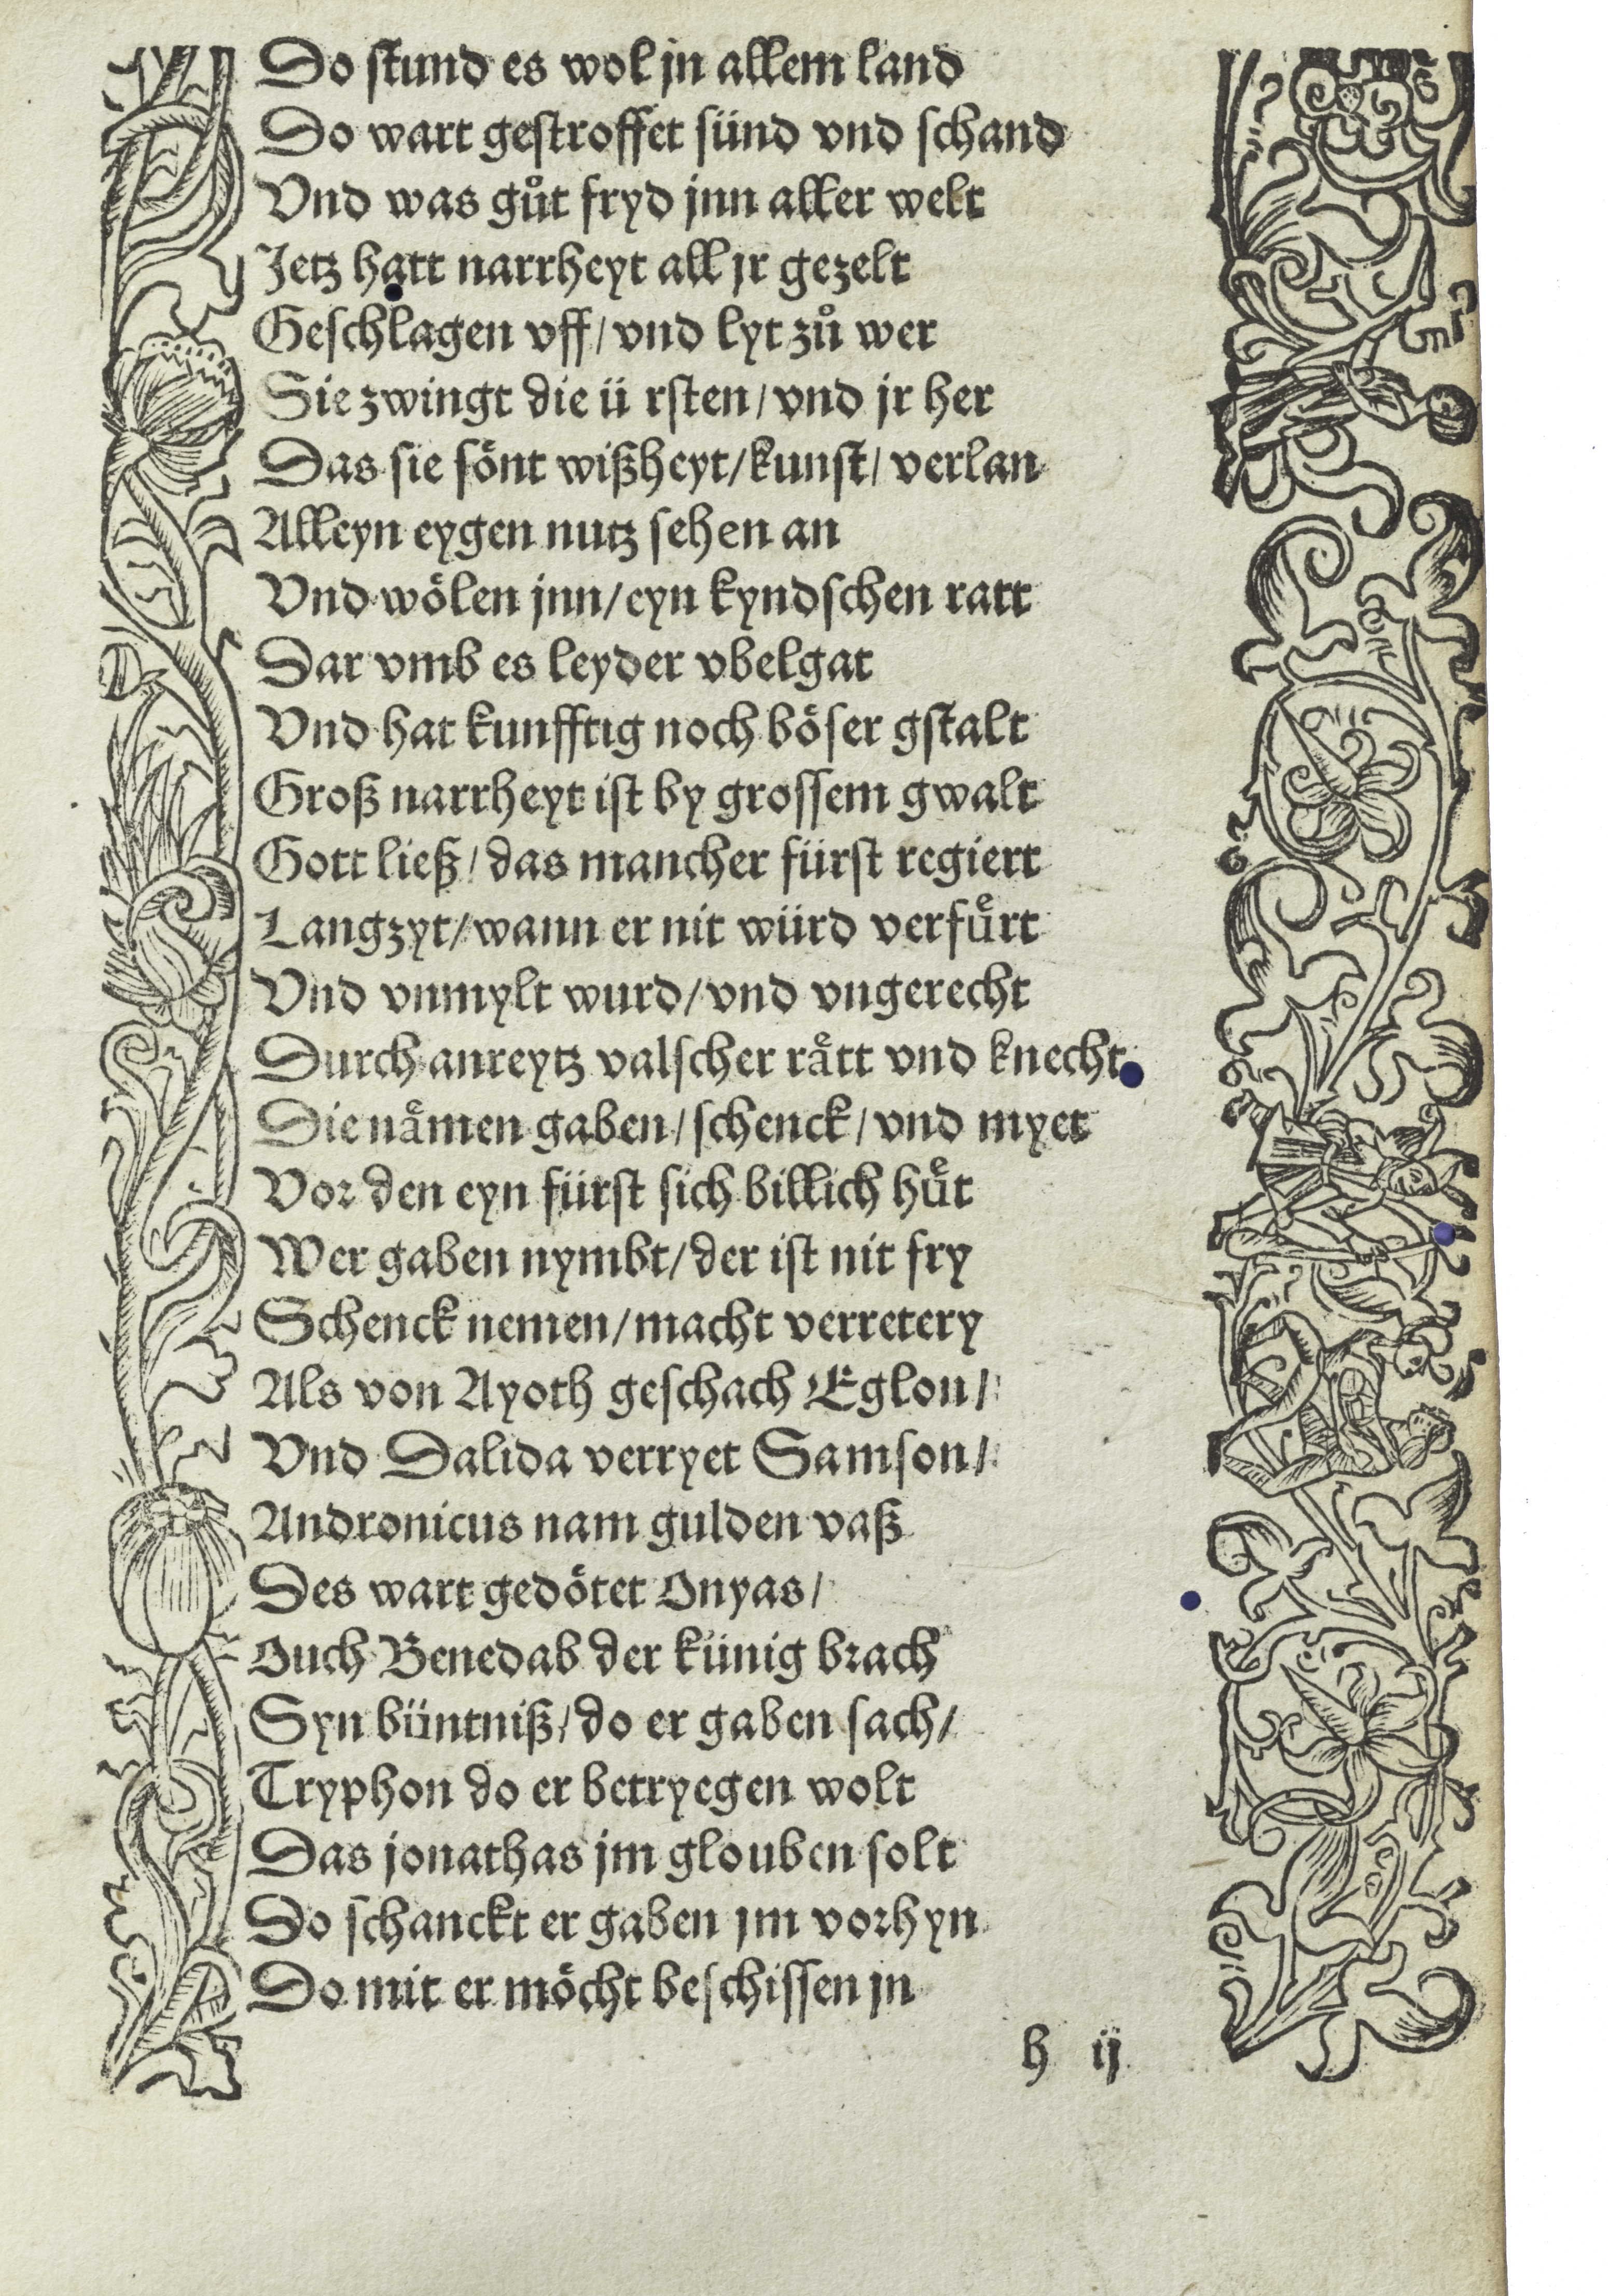 Do stund es wol jn allem land
Do wart gestroffet sünd vnd schand
Vnd was gůt fryd jnn aller welt
Jetz hatt narrheyt all jr gezelt
Geschlagen vff/ vnd lyt zů wer
Sie zwingt die ü rsten/ vnd jr her
Das sie sönt wißheyt/ kunst/ verlan
Alleyn eygen nutz sehen an
Vnd wölen jnn/ eyn kyndschen ratt
Dar vmb es leyder vbelgat
Vnd hat kunfftig noch böser gstalt
Groß narrheyt ist by grossem gwalt
Gott ließ/ das mancher fürst regiert
Langzyt/ wann er nit würd verfuͤrt
Vnd vnmylt wurd/ vnd vngerecht
Durch anreytz valscher raͤtt vnd knecht
Die naͤmen gaben/ schenck/ vnd myet
Vor den eyn fürst sich billich huͤt
Wer gaben nymbt/ der ist nit fry
Schenck nemen/ macht verretery
Als von Ayoth geschach Eglon/
Vnd Dalida verryet Samson/
Andronicus nam gulden vaß
Des wart gedötet Onyas/
Ouch Benedab der künig brach
Syn büntniß/ do er gaben sach/
Tryphon do er betryegen wolt
Das jonathas jm glouben solt
Do schanckt er gaben jm vorhyn
Do mit er möcht beschissen jn
h ij